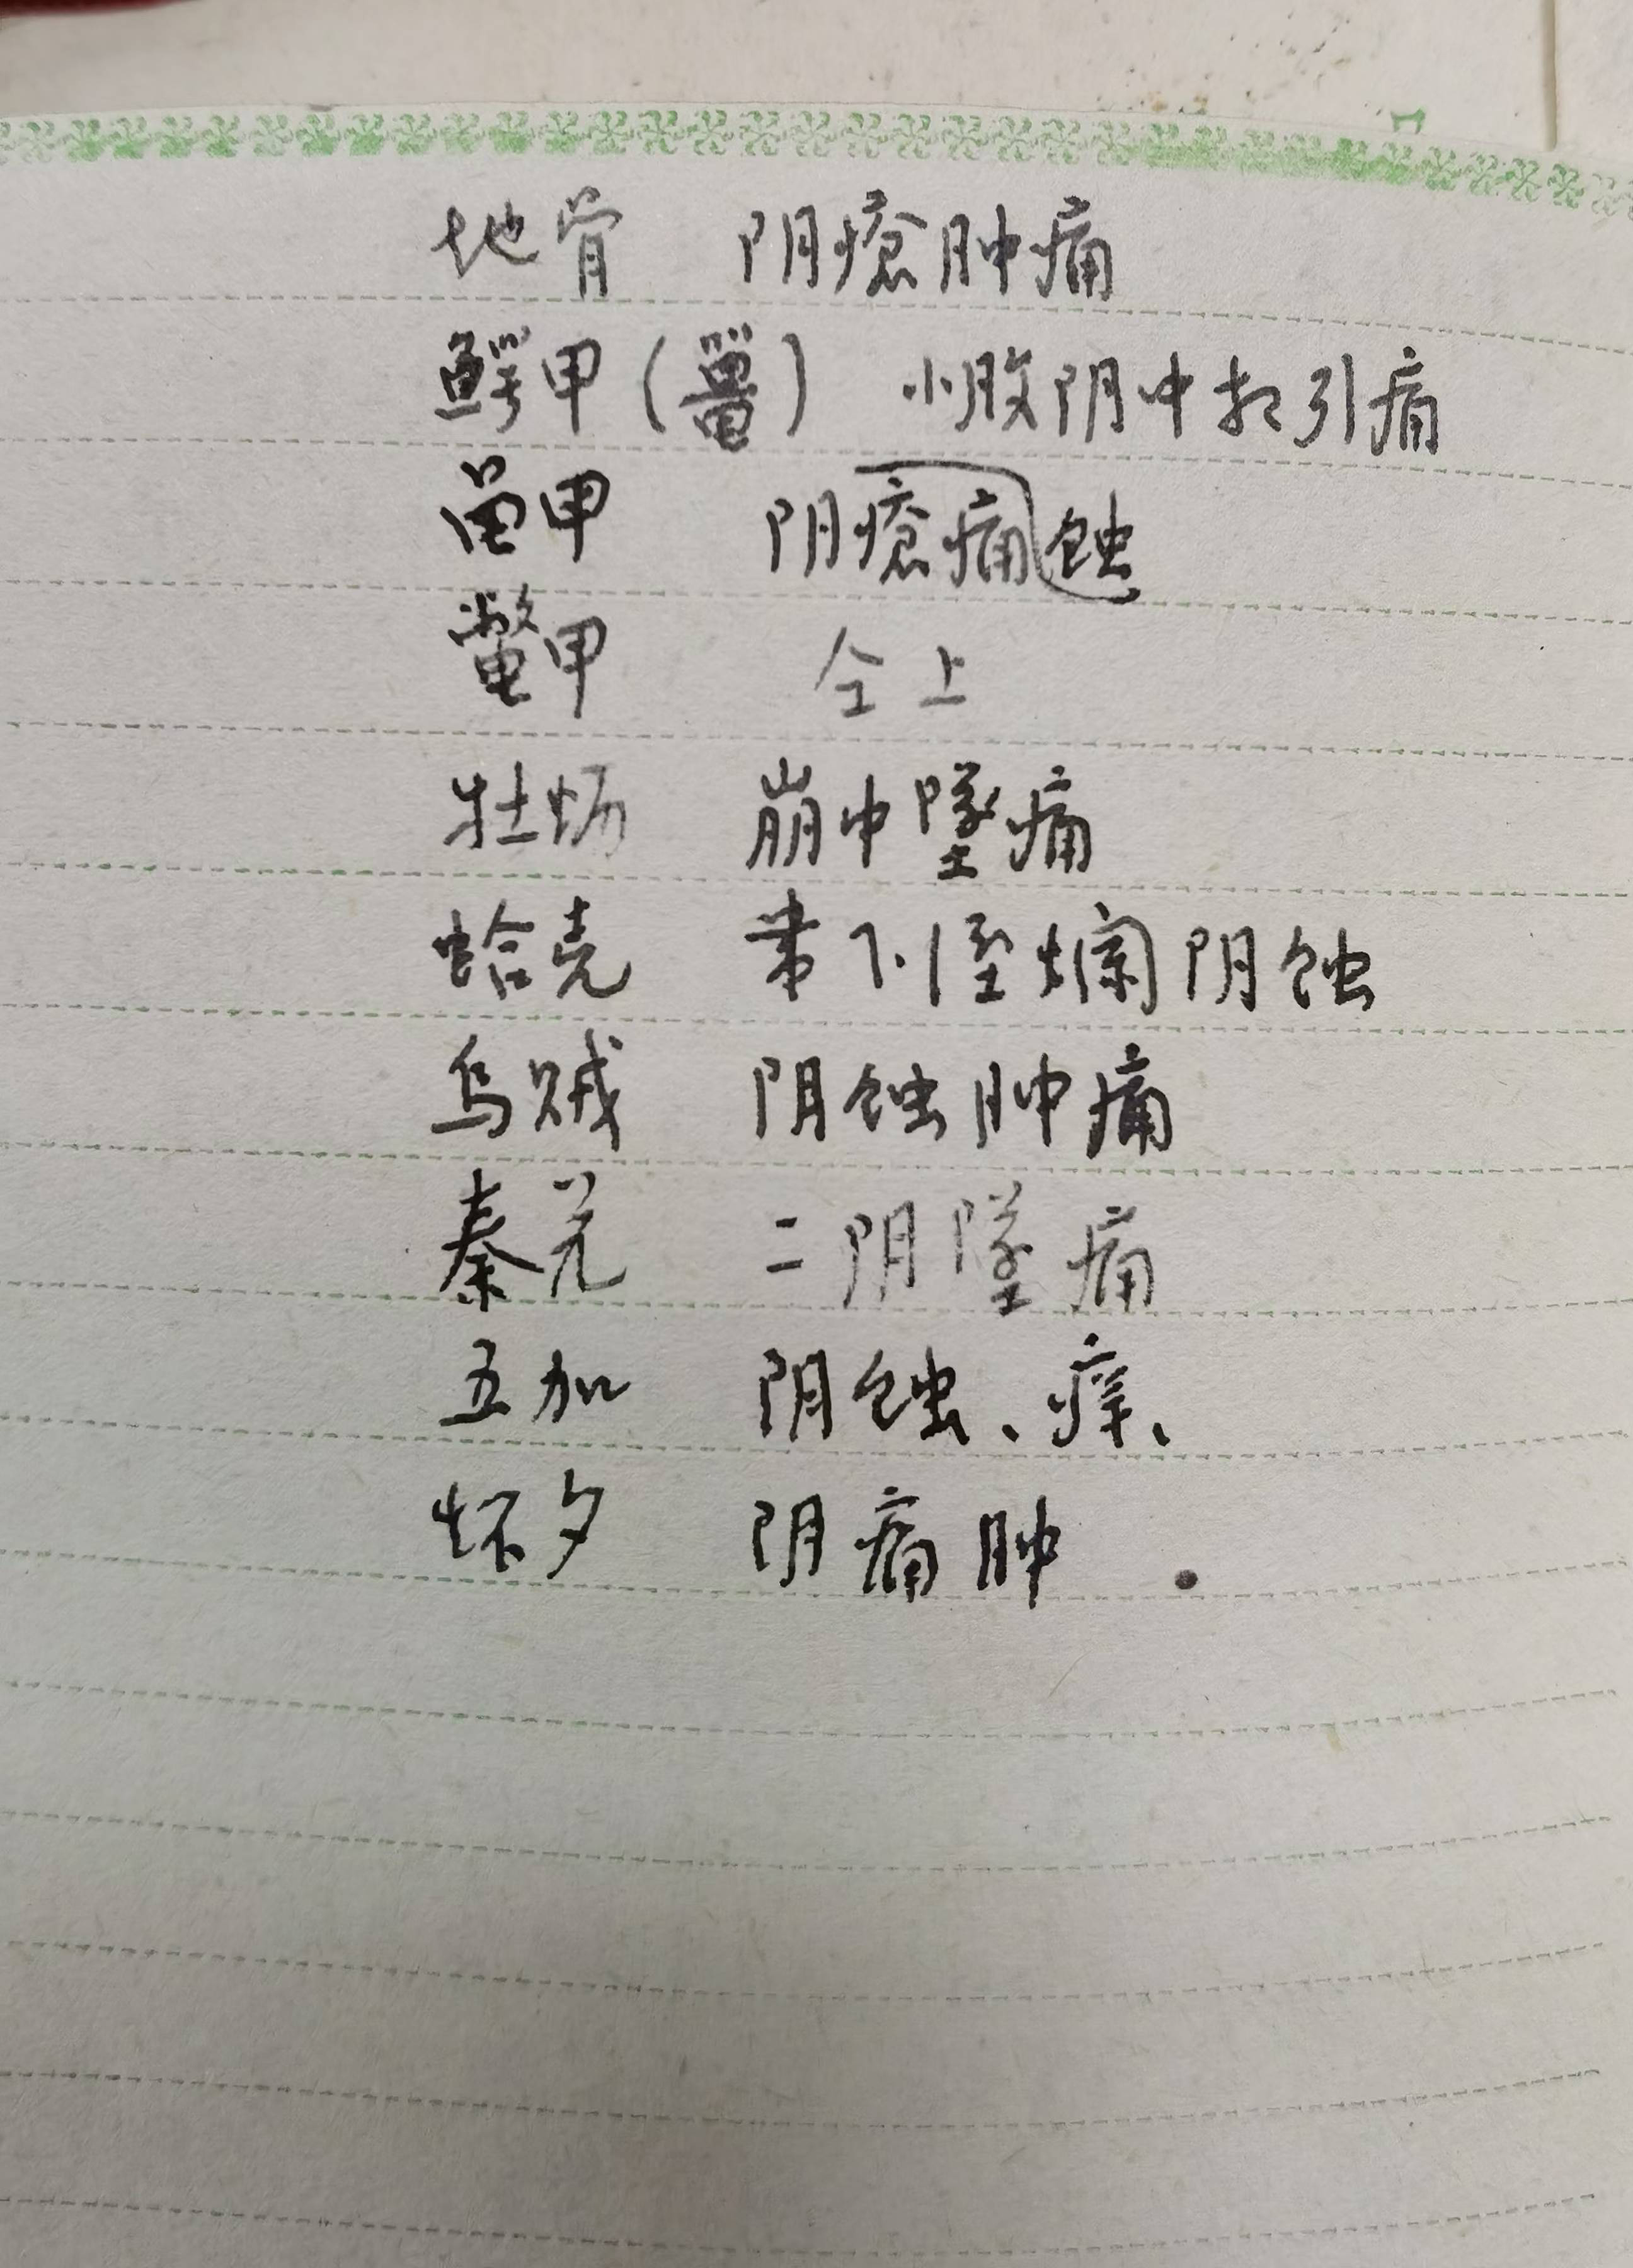 地骨 阴瘡肿痛
鳄甲(鼍) 小腹阴中相引痛
龟甲 阴瘡痛蚀
鳖甲 仝上
牡蛎 崩中墜痛
蛤壳 带下 烂阴蚀
乌贼 阴蚀肿痛
秦艽 二阴墜痛
五加 阴蚀、痒、
怀夕 阴痛肿.